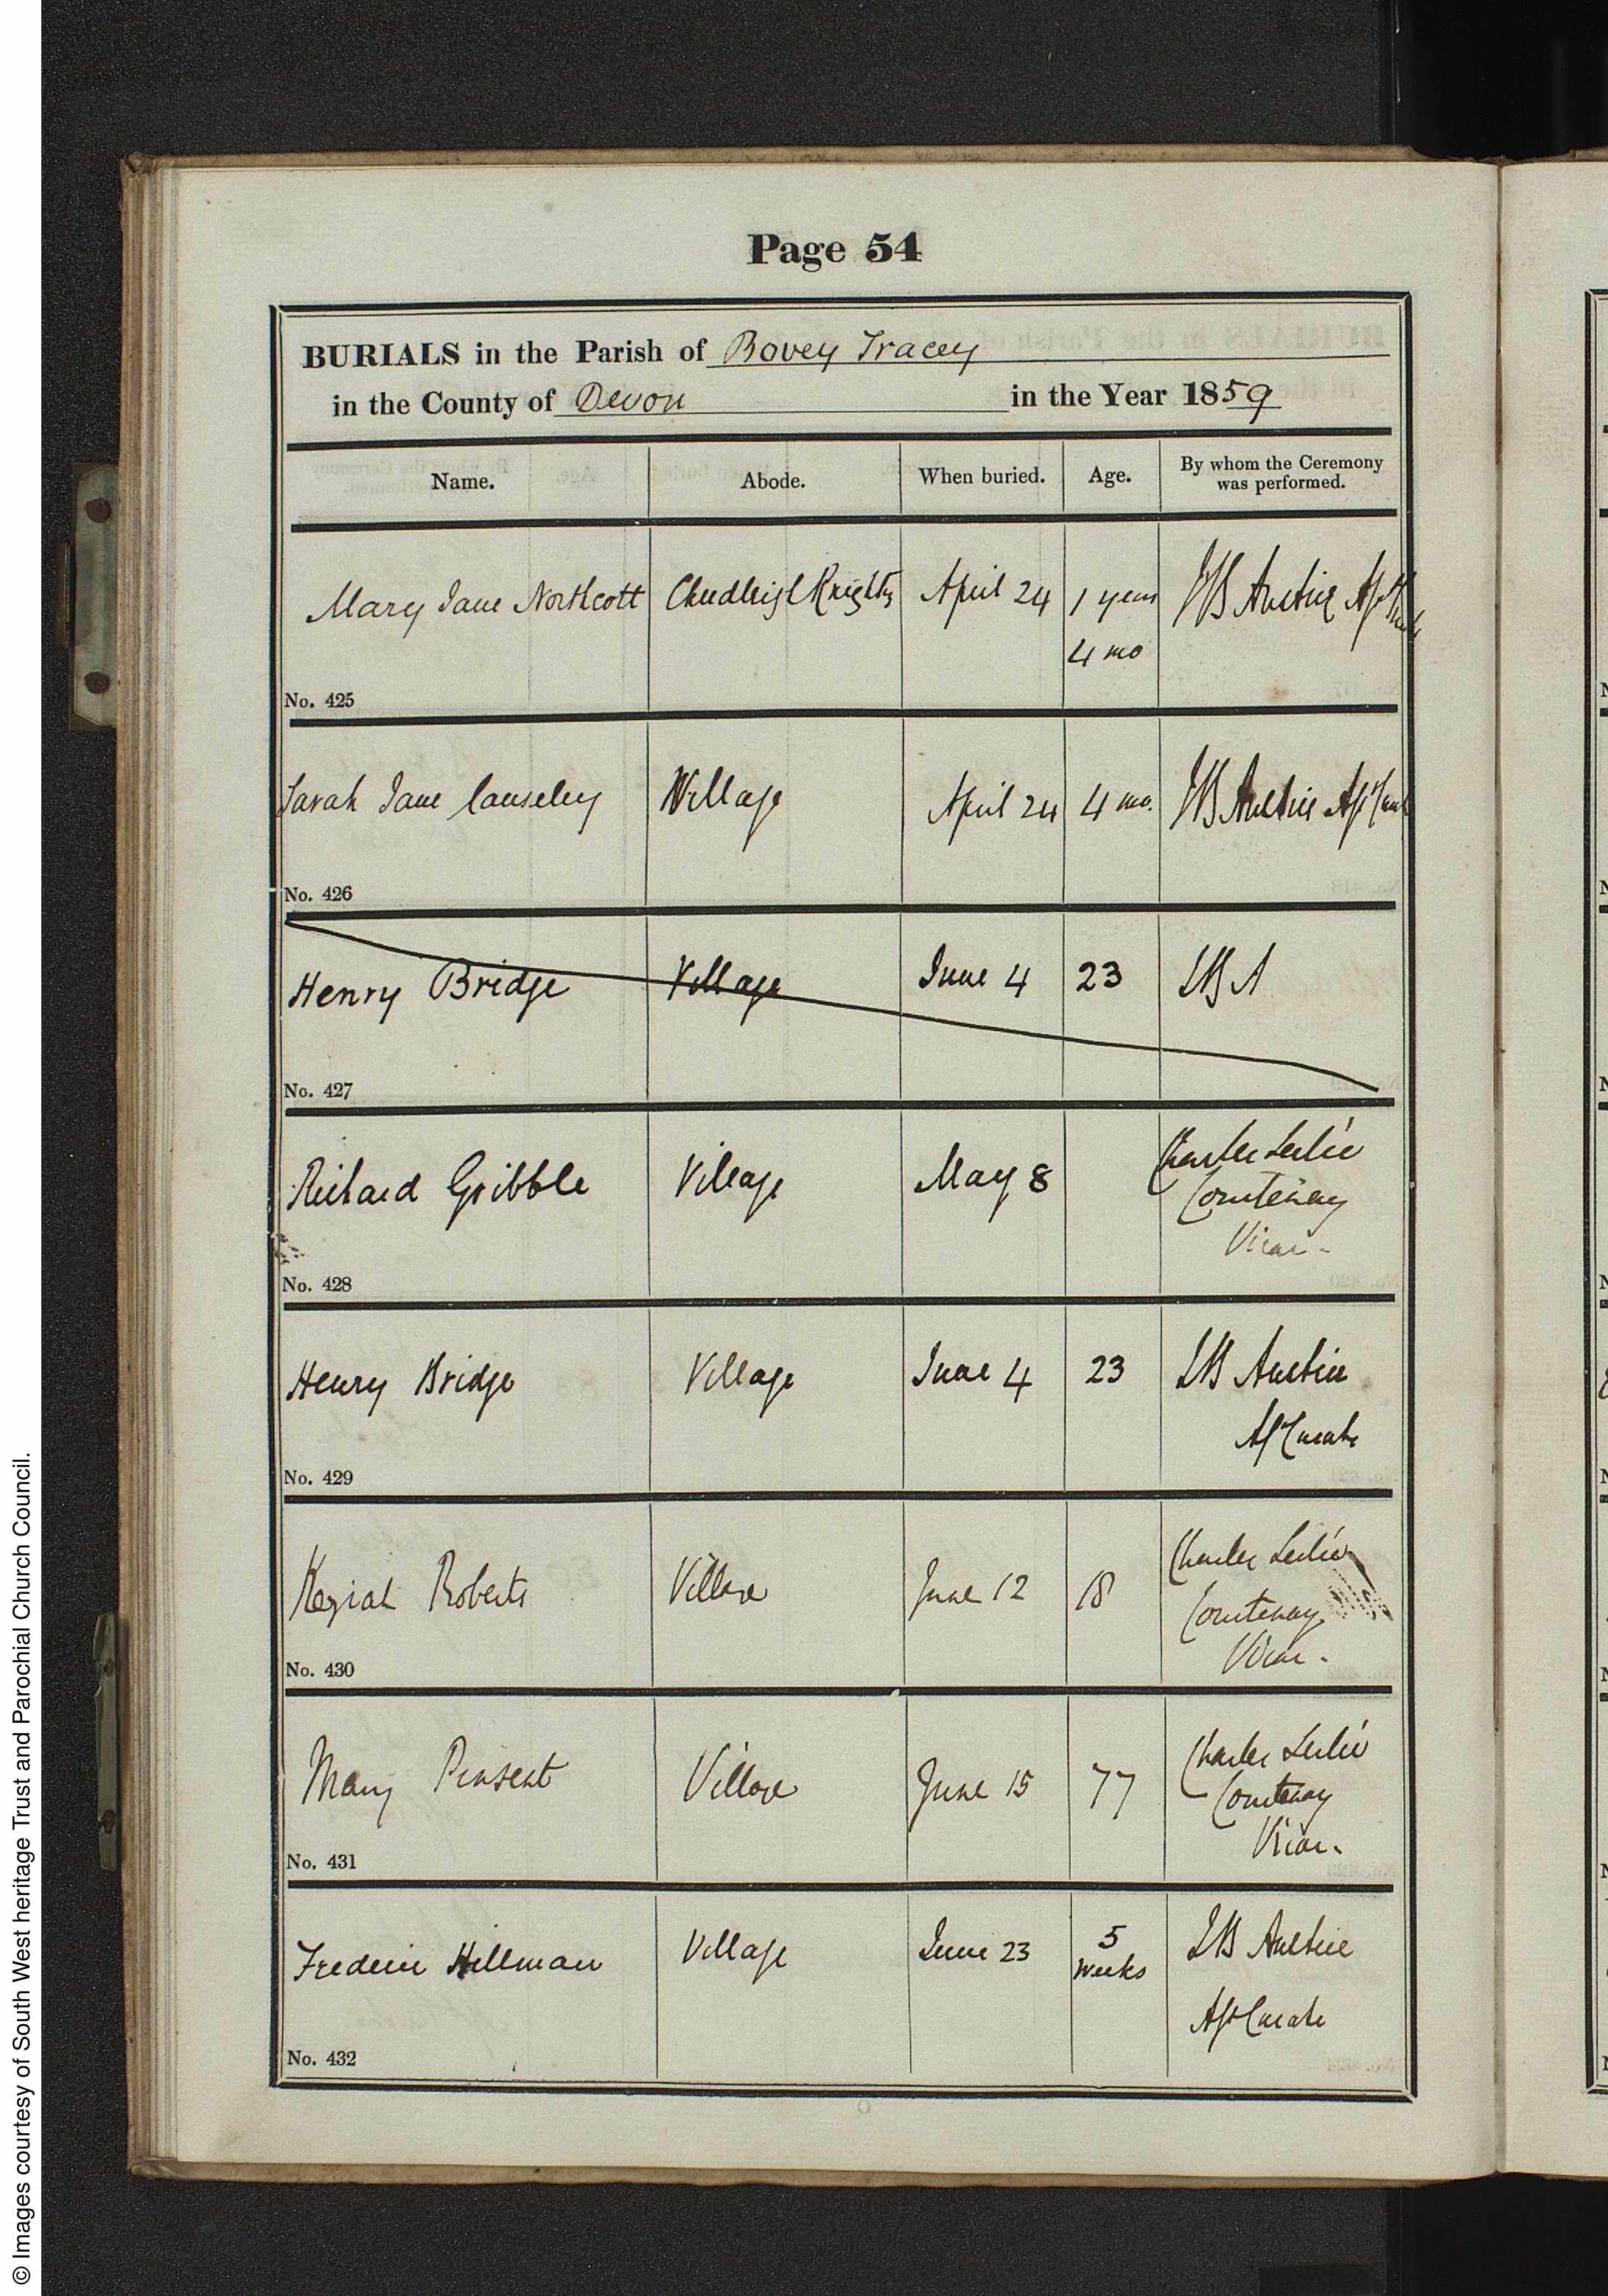 Page 54
BURIALS in the Parish of Bovey Tracey
in the County of Devon in the Year 1859
Name. Abode. When buried. Age. By whom the Ceremony was performed.
Mary Jane Northcott Chudleigh Knighton April 24 1 year
4 mo
No. 425
Sarah Jane Causeley Village April 24 4 mo.
No. 426
Henry Bridge Village June 4 23
No. 427
Richard Gribble Village May 8 Charles Leslie
Courtenay
Vicar.
No. 428
Henry Bridge Village June 4 23
No. 429
Keziah Roberts Village June 12 18 Charles Leslie
Courtenay
Vicar.
No. 430
Mary Pinsent Village June 15 77 Charles Leslie
Courtenay
Vicar.
No. 431
Frederic Hillman Village June 23 5
weeks
No. 432
© Images courtesy of South West heritage Trust and Parochial Church Council.